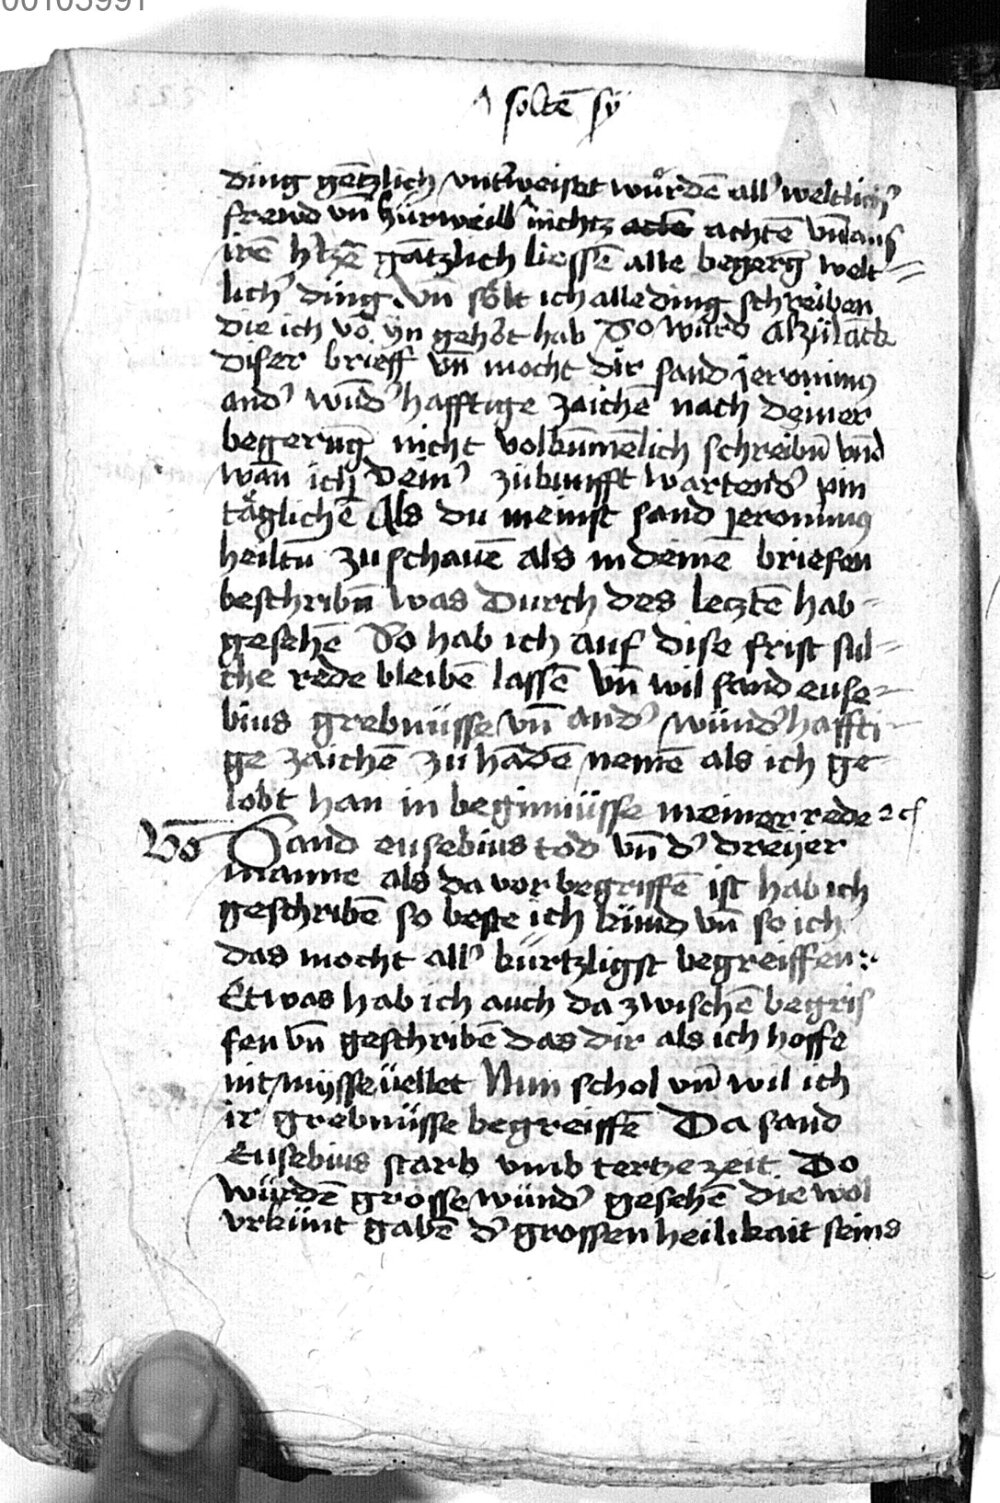 00103991
solte͂ sÿ
ding ge͂tzlich vnt͛weiset wuͤrde͂ all͛ weltlich͛
frewd vn͂ kürtzweill nichtz achte͂ vn͂ aus
ire͂ h͛tze͂ ga͂tzlich liesse͂ alle begerg͂ welt=
lich͛ ding. vn͂ soͤlt ich alle ding schreiben
die ich vo͂ ÿn geho͛t hab So würd alzu la͂ck
diser brieff vn͂ mocht dir sand jeronimus
and͛ wu͂d͛hafftige zaiche͂ nach deiner
begerug͂ nicht volku͂me͂lich schreibn͂ vn͂d
wan͂ ich dein͛ zükunfft wartend͛ pin
taͤgliche͂ Als du meinst sand jeronimus
heiltu͂ zu schaue͂ als in deine͂ briefen
beschribn͂ was Durch des leczte͂ hab=
gesehe͂ So hab ich auf dise frist sul=
che rede bleibe͂ lasse͂ vn͂ wil sand euse=
bius grebnüsse vn͂ and͛ wünd͛haffti=
ge zaiche͂ zu ha͂de͂ neme͂ als ich ge=
lobt han in beginnüsse meiner rede ꝛc
Vo͂ Sand eusebius tod vn͂ d͛ dreÿer
manne als da vor begriffe͂ ist hab ich
geschribe͂ so beste ich künd vn͂ so ich
das mocht all͛ kürtzligst begreiffen:.
Etwas hab ich auch da zwische͂ begrif
fen vn͂ geschribe͂ das dir als ich hoffe
nit mÿsseuellet Nun schol vn͂ wil ich
ir grebnüsse begreiffe͂ Da sand
Eusebius starb vmb tertze zeit Do
würde͂ grosse wünd͛ gesehe͂ die wol
vrkünt gabe͂ d͛ grossen heilikait seins